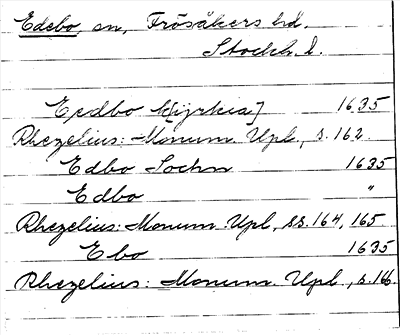 Edebo, sn, Frösåkers hd.
Stockh. l.
Eedbo K[yrkia] 1635
Rhezelius: Monum. Upl., s. 162.
Edbo Sochn 1635
Edbo "
Rhezelius: Monum. Upl., ss. 164, 165.
Ebo 1635
Rhezelius: Monum. Upl., s. 166.